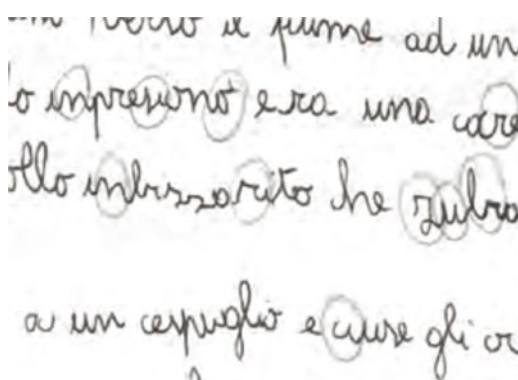 verso il fiume ad un
inpresionò era una care
ollo inbizzarito he zubra
a un cespuglio e ciuse gli oc